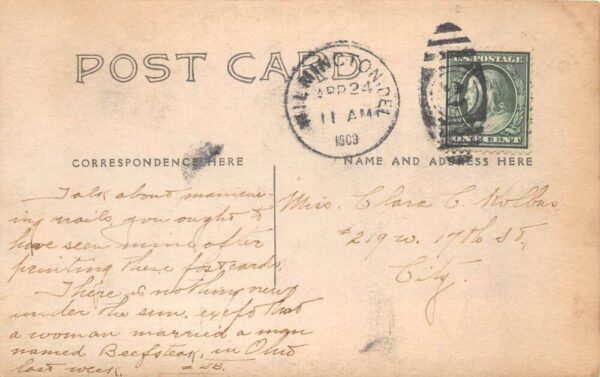 POST CARD
WILMINGTON, DEL.
APR 24
11 AM
1909
U.S. POSTAGE
ONE CENT
CORRESPONDENCE HERE
NAME AND ADDRESS HERE
Talk about manicur-
ing nails you ought to
have seen mine after
printing these postcards
There is nothing new
under the sun, exept that
a woman married a man
named Beefsteak, in Ohio
last week.
Miss. Clara C. Kolbas
#219 W. 17th St,
City.